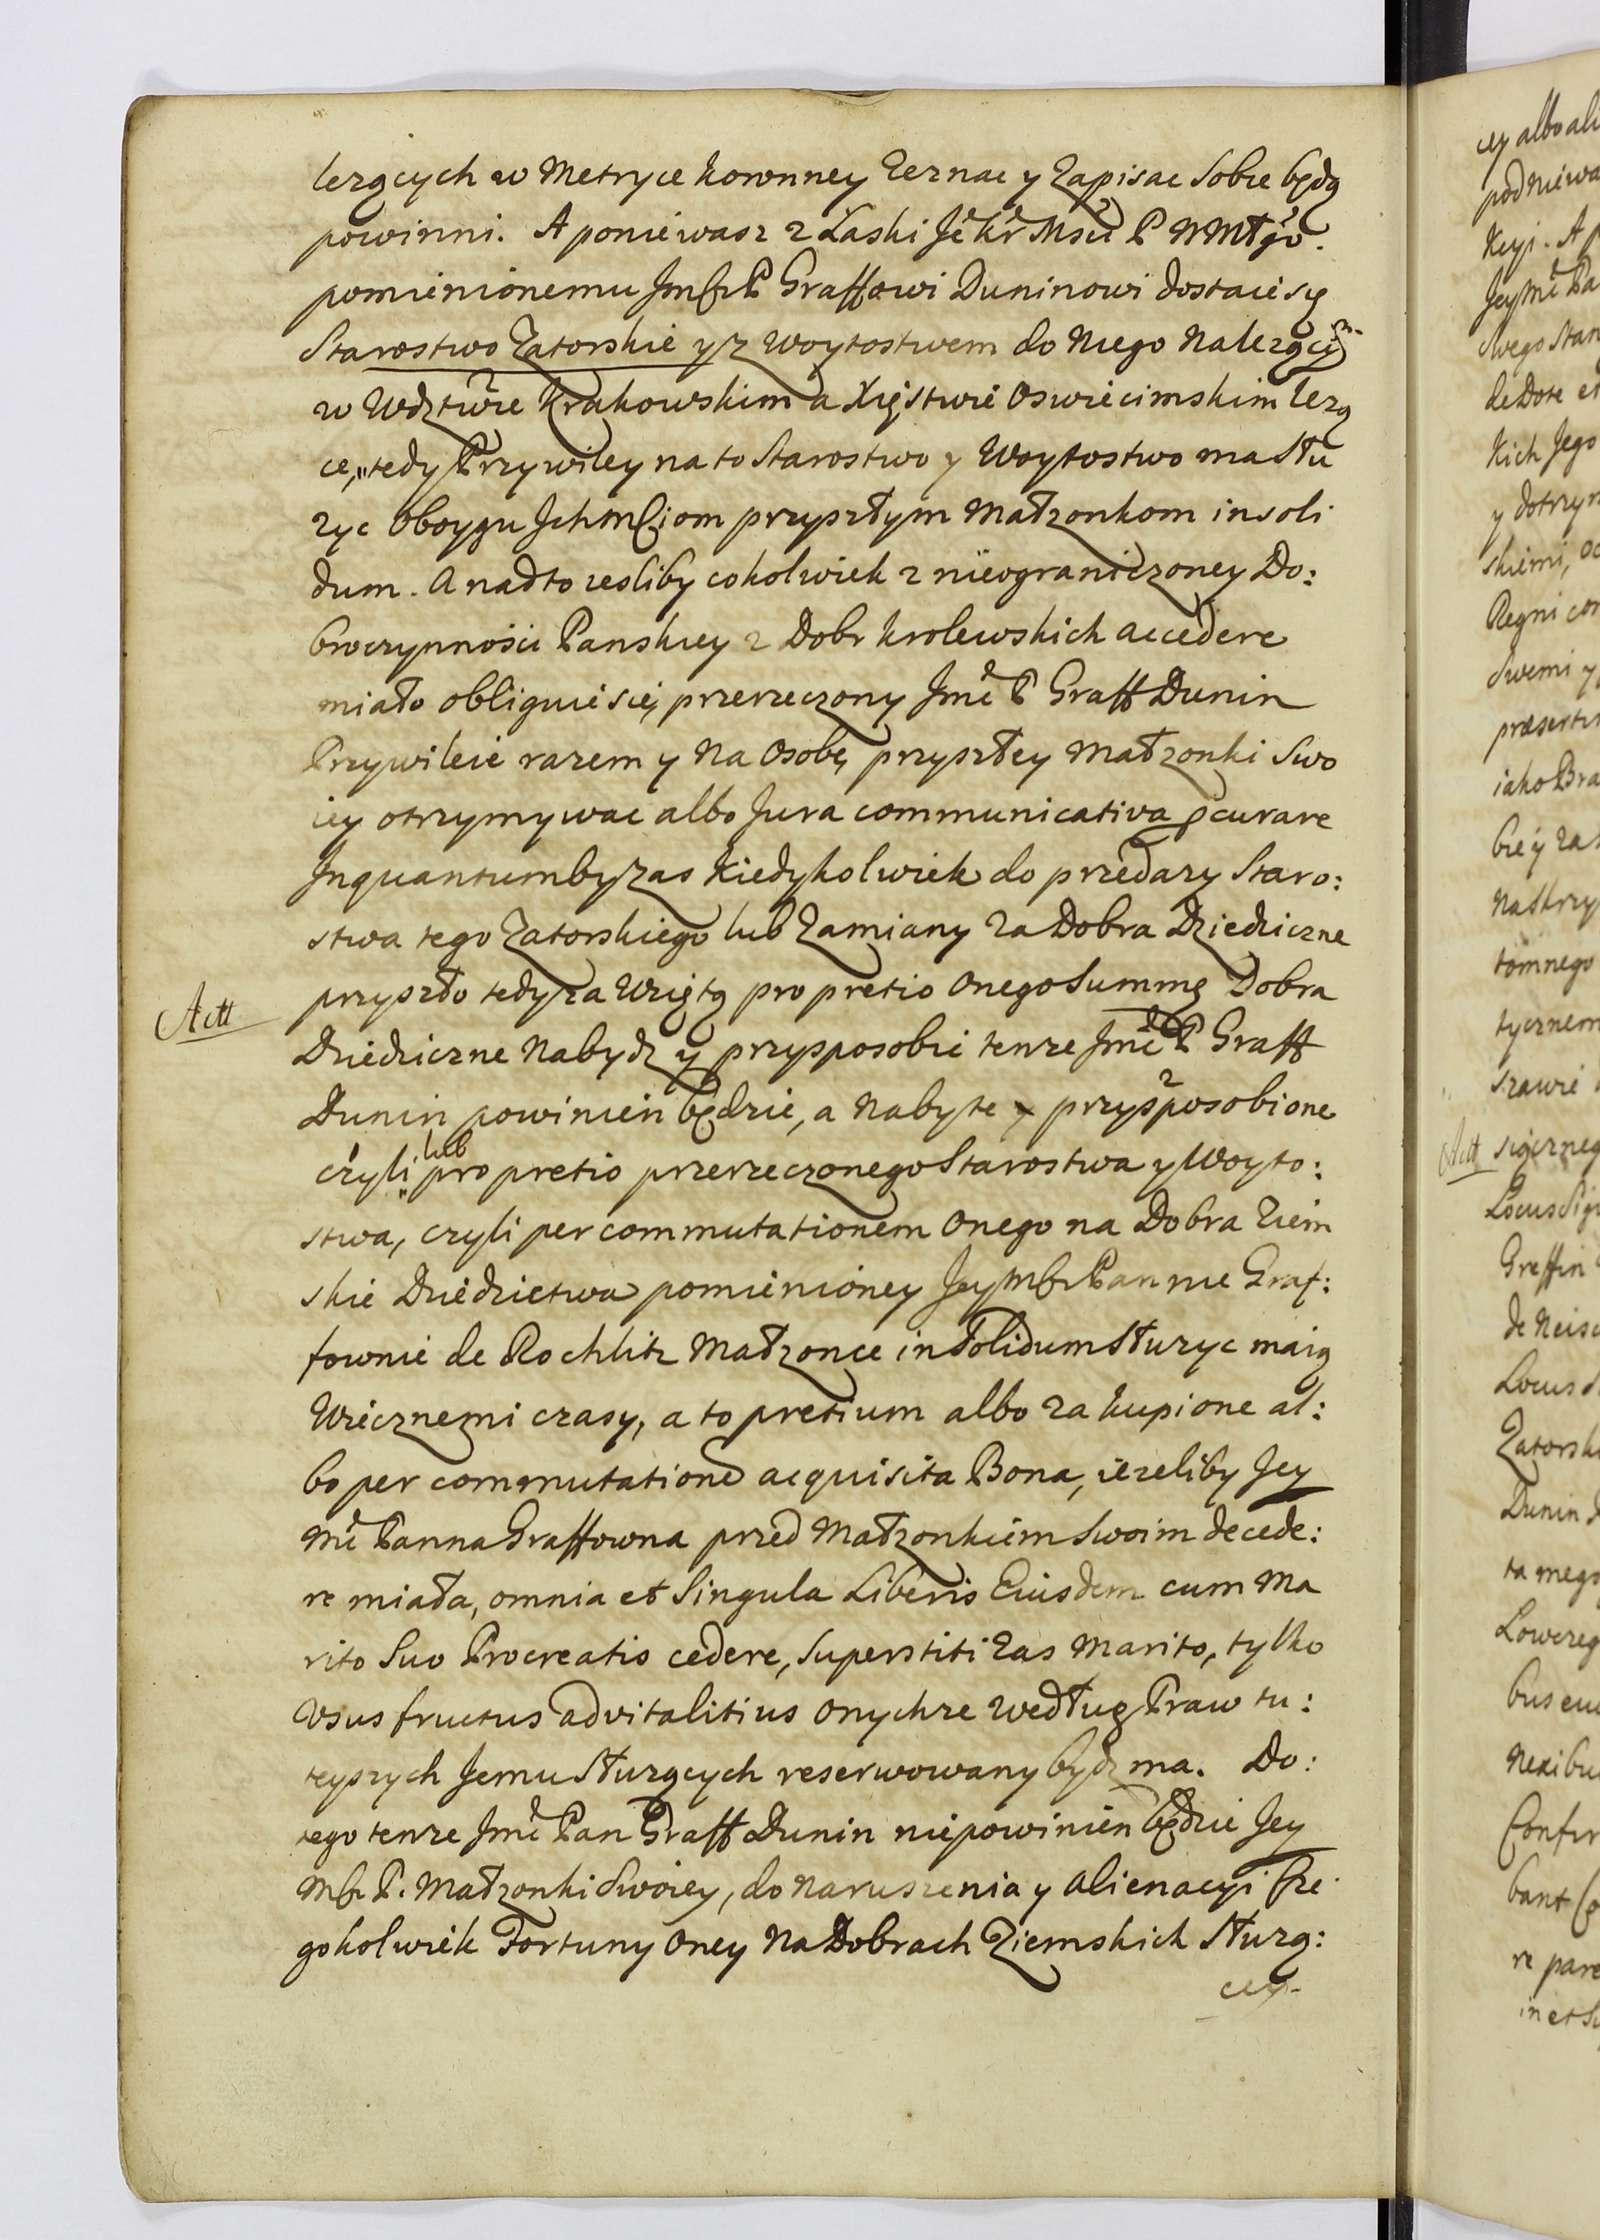 lezących w Metryce koronney zeznac y Zapisac Sobie będą
powinni. A poniewasz z Łaski Je kr Msci P N Młgo.
pomienionemu Jmści P Graffowi Duninowi dostaie się
Starostwo Zatorskie y z Woytostwem do Niego Nalezącym
w Wdztwie Krakowskim a Xięstwie Oswiecimskim lezą
ce, tedy Przywiley na to Starostwo y Woytostwo ma słu
zyc Oboygu Jchmściom przyszłym Małzonkom in soli
dum. A nadto iesliby cokolwiek z nieograniczoney Do:
broczynności Panskiey z Dobr krolewskich accedere
miało obliguie się, przerzeczony Jmć P Graff Dunin
Przywileie razem y Na Osobę, przyszłey Małzonki Swo
iey otrzymywac albo Jura communicativa pcurare
Jnquantumby Zas Kiedykolwiek do przedazy Staro:
stwa tego Zatorskiego lub Zamiany za Dobra Dziedziczne
Act
przyszło tedy za Wziętą pro pretio Onego Summę Dobra
Dziedziczne Nabydz y przysposobic tenze Jmć P Graff
Dunin powinien będzie, a Nabyte y przysposobione
czyli lub pro pretio przerzeczonego Starostwa y Woyto:
stwa, czyli per commutationem Onego na Dobra Ziem
skie Dziedzictwa pomienioney Jeymści Pannie Graf:
fownie de Rochlitz Małzonce in Solidum Słuzyc maią
Wiecznemi czasy, a to pretium albo za kupione al:
bo per commutatione acquisita Bona, iezeliby Jey
Mć Panna Graffowna przed Małzonkiem Swoim decede:
re miała, omnia et Singula Liberis Eiusdem cum Ma
rito Suo Procreatis cedere, Superstiti Zas Marito, tylko
Vsus fructus advitalitius Onychze według Praw tu:
teyszych Jemu Słuzących reserwowany bydz ma. Do:
tego tenze Jmć Pan Graff Dunin niepowinien będzie Jey
Mści P. Małzonki Swoiey, do Naruszenia y alienacyi Cze
gokolwiek Fortuny Oney Na Dobrach Ziemskich Słuzą:
cey.
cey albo ali
pod niewa
Jeymć Pa
Swego Stan
de Dote et
Kich Jego
y dotrzym
skiemi,
Regni con
Swemi y
præsertim
iako Bra
bie y za
Na Skrzy
tomnego
tycznem
szawie
Act
sięczneg
Locus Sigi
Greffin
de Neis
Locus S
Zatorski
Dunin d
ta mego
Lowczeg
bus
Nexibu
Confir
bant Co
re pare
in et Su